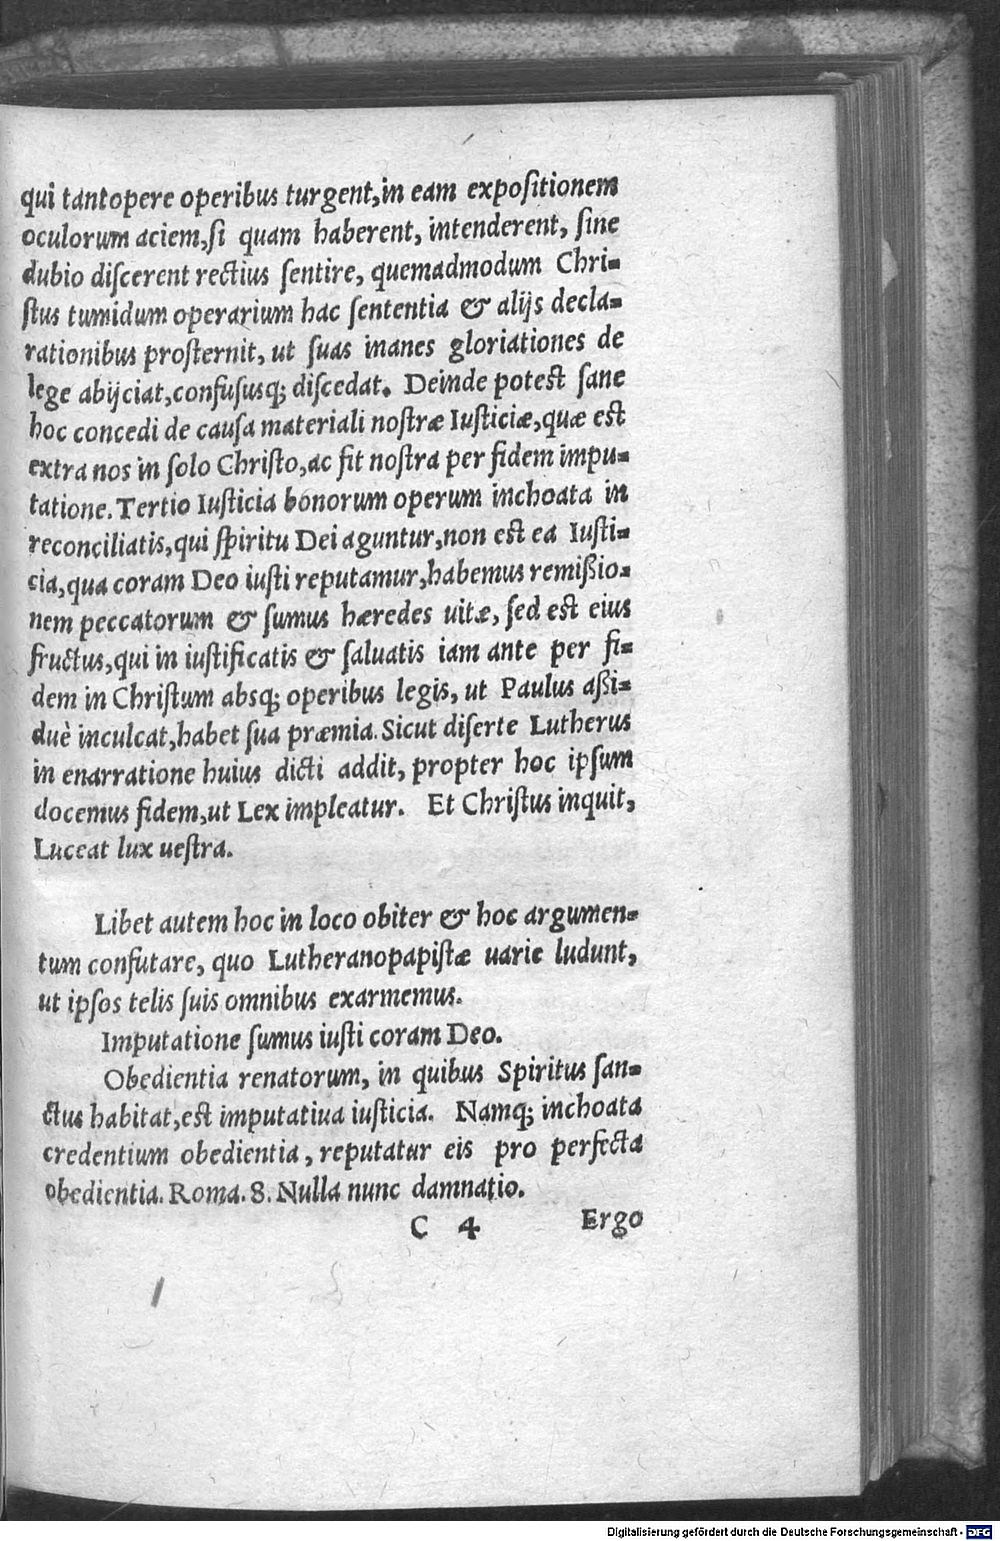 qui tantopere operibus turgent,in eam expositionem
oculorum aciem,ſi quam haberent, intenderent, ſine
dubio diſcerent rectius ſentire, quemadmodum Chri-
ſtus tumidum operarium hac ſententia & alijs decla-
rationibus proſternit, ut ſuas inanes gloriationes de
lege abijciat,confuſusq; diſcedat. Deinde potest ſane
hoc concedi de cauſa materiali nostræ Iuſticiæ,quæ est
extra nos in ſolo Chriſto,ac fit noſtra per fidem impu-
tatione. Tertio Iuſticia bonorum operum inchoata in
reconciliatis,qui ſpiritu Dei aguntur,non est ea Iuſti-
cia,qua coram Deo iuſti reputamur,habemus remiſſio-
nem peccatorum & ſumus hæredes uitæ, ſed est eius
fructus,qui in iuſtificatis & ſaluatis iam ante per fi-
dem in Chriſtum absq; operibus legis, ut Paulus aſſi-
duè inculcat,habet ſua præmia. Sicut diſerte Lutherus
in enarratione huius dicti addit, propter hoc ipſum
docemus fidem,ut Lex impleatur. Et Chriſtus inquit,
Luceat lux ueſtra.
Libet autem hoc in loco obiter & hoc argumen-
tum confutare, quo Lutheranopapiſtæ uarie ludunt,
ut ipſos telis ſuis omnibus exarmemus.
Imputatione ſumus iuſti coram Deo.
Obedientia renatorum, in quibus Spiritus ſan-
ctus habitat,est imputatiua iuſticia. Namq; inchoata
credentium obedientia, reputatur eis pro perfecta
obedientia. Roma. 8. Nulla nunc damnatio.
C 4 Ergo
Digitalisierung gefördert durch die Deutsche Forschungsgemeinschaft - DFG